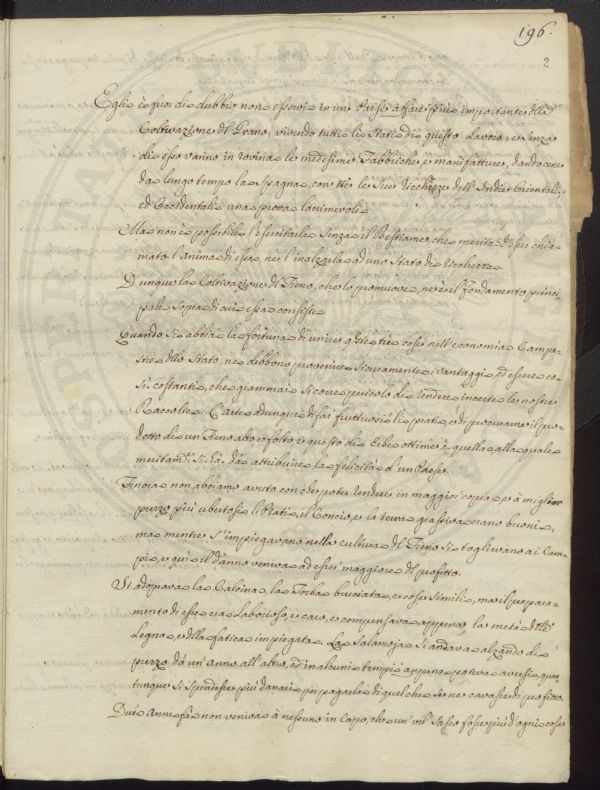 196.
2
Egli è fuor di dubbio non esservi in un Paese affare più importante della
Coltivazione del Grano, vivendo tutti li Stati di questo Lavoro, e senza
di esso vanno in rovina le medesime Fabbriche, e manifatture, dandocene
da lungo tempo la Spagna, con le sue Ricchezze dell'Indie Orientali,
ed Occidentali una prova lacrimevole.
Ma non è possibile l'esercitarla senza il Bestiame, che merita d'esser chia-
mato l'anima di essa, nè l'inalzarla ad uno Stato di Ricchezza.
Dunque la Coltivazione del Fieno, che lo promuove, ne è el fondamento princi-
pale sopra di cui essa consiste.
Quando si abbia la fortuna di unire queste tre cose nell'economia Campe-
stre dello Stato, ne debbono provenire sicuramente i vantaggi, ed essere co-
sì costanti, che giammai si corre pericolo di rendere incerte le nostre
Raccolte. L'arte adunque di far fruttuosi li prati, e di procurare il pro-
dotto di un Fieno alto e folto, e questo di Erbe ottime è quella, alla quale
meritamte si dà da attribuire la felicità d'un Paese.
Finora non abbiamo avuto con che poter rendere in maggior copia, e à miglior
prezzo più ubertosi li Prati, il Concio, e la terra grassa erano buoni,
ma mentre s'impiegavano nella cultura del Fieno si toglievano ai Cam-
pi, e quì il danno veniva ad esser maggiore del profitto.
Si adoprava la Calcina, la Torba bruciata, e cose simili, ma il prepara-
mento di esse era laborioso, e caro, e compensava appena la metà delle
Legna, e della fatica impiegata. La Salamoja si andava alzando di
prezzo da un'anno all'altro, ed in alcuni tempi appena poteva aversi, quan-
tunque si spendesse più danari per pagarla di quel che se ne cavasse di profitto.
Due Anni fà non veniva à nessuno in Capo, che un vil Sasso fosse più d'ogni cosa